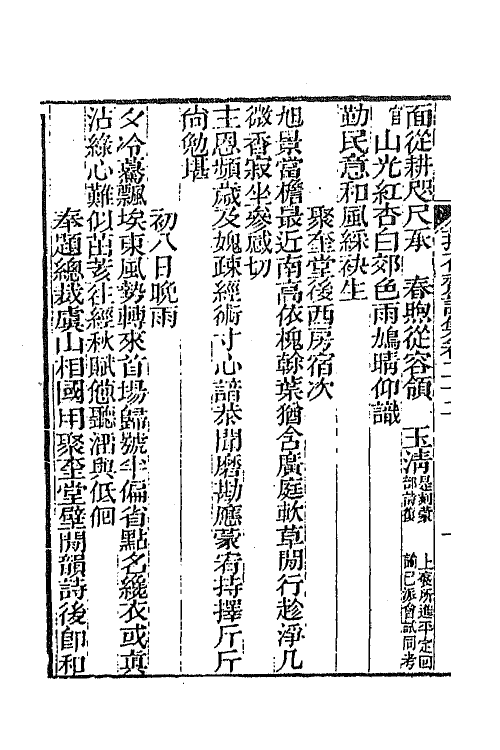 面從耕咫尺承　春煦從容領　玉清是刻蒙　上發所進平定回部詩復　諭已派會試同考
官山光紅杏白郊色雨鳩晴仰識
勤民意和風綵袂生
聚奎堂後西房宿次
旭景當檐最近南高依槐幹葉猶含廣庭軟草閒行趁淨几
微香寂坐參感切
主恩頻歲及媿疎經術寸心諳恭聞磨勘應蒙宥持擇斤斤
尙勉堪
初八日晚雨
夕冷驀飄埃東風勢轉來首場歸號半偏省點名纔衣或眞
沾綠心難似茁荄往經秋賦他聽洒與低徊
奉題總裁虞山相國用聚奎堂壁閒韻詩後卽和